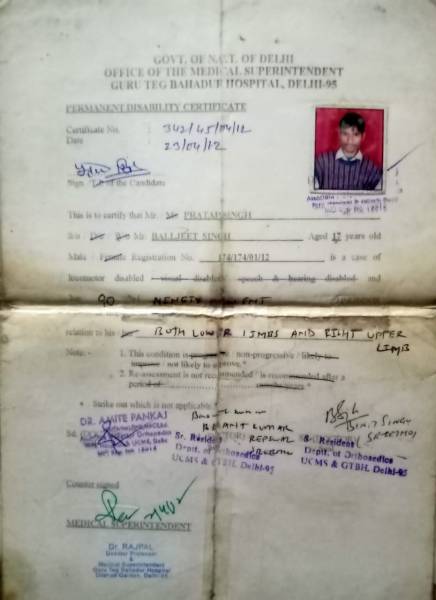 GOVT. OF N.C.T. OF DELHI
OFFICE OF THE MEDICAL SUPERINTENDENT
GURU TEG BAHADUR HOSPITAL, DELHI-95
PERMANENT DISABILITY CERTIFICATE
Certificate No. : 342/45/04/12
Date 23/04/12
Sign / T.I of the Candidate
This is to certify that Mr. Ms PRATAP SINGH
S/o D/o W/o Mr. BALLJEET SINGH Aged 17 years old
Male / Female Registration No. 174/174/01/12 is a case of
locomotor disabled visual disabled speech & hearing disabled and
has 90 PERMANENT
relation to his her BOTH LOWER LIMBS AND RIGHT UPPER
LIMB
Note:- 1. This condition is progressive / non-progressive / likely to
improve / not likely to improve.*
2. Re-assessment is not recommended / is recommended after a
period of
* Strike out which is not applicable
DR. AMITE PANKAJ
UCMS, Delhi
Sr. Resident
Deptt. of Orthopedics
UCMS & GTBH, Delhi-95
Sr. Resident
Deptt. of Orthopedics
UCMS & GTBH, Delhi-95
Counter signed
MEDICAL SUPERINTENDENT
Dr. RAJPAL
Director Professor
&
Medical Superintendent
Guru Teg Bahadur Hospital
Dilshad Garden, Delhi-95